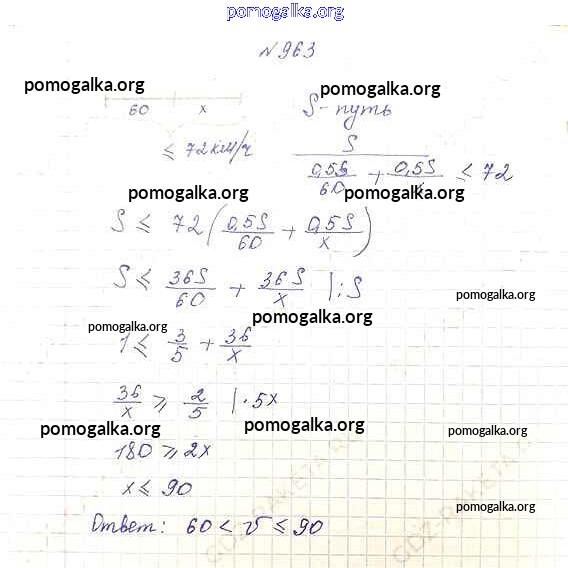 pomogalka.org
№963
pomogalka.org pomogalka.org
60 x S - путь
≤ 72 км/ч S / (0,5S/60 + 0,5S/x) ≤ 72
pomogalka.org pomogalka.org
S ≤ 72 (0,5S/60 + 0,5S/x)
S ≤ 36S/60 + 36S/x |:S
pomogalka.org
pomogalka.org pomogalka.org
1 ≤ 3/5 + 36/x
36/x ≥ 2/5 |·5x
pomogalka.org pomogalka.org pomogalka.org
180 ≥ 2x
x ≤ 90
pomogalka.org
Ответ: 60 < v ≤ 90
GDZ-RAKETA.RU